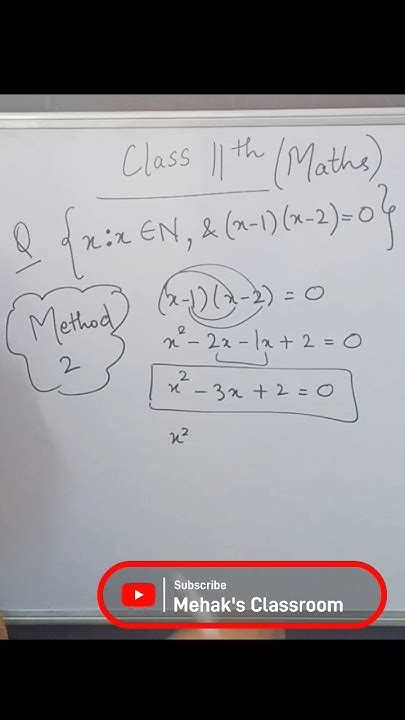 Class 11th (Maths)
Q {x:x ∈ N, & (x-1)(x-2)=0}
Method
2
(x-1)(x-2) = 0
x² - 2x - 1x + 2 = 0
x² - 3x + 2 = 0
x²
Subscribe
Mehak's Classroom